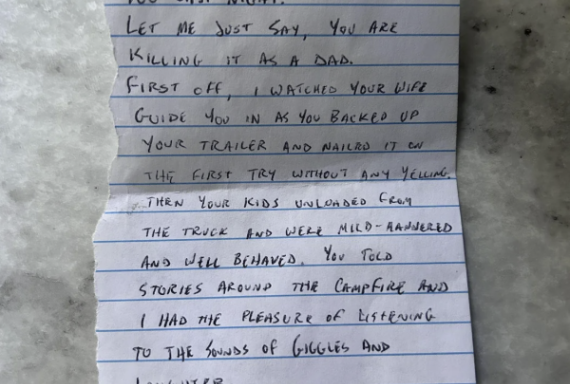 LET ME JUST SAY, YOU ARE
KILLING IT AS A DAD.
FIRST OFF, I WATCHED YOUR WIFE
GUIDE YOU IN AS YOU BACKED UP
YOUR TRAILER AND NAILED IT ON
THE FIRST TRY WITHOUT ANY YELLING.
THEN YOUR KIDS UNLOADED FROM
THE TRUCK AND WERE MILD-MANNERED
AND WELL BEHAVED. YOU TOLD
STORIES AROUND THE CAMPFIRE AND
I HAD THE PLEASURE OF LISTENING
TO THE SOUNDS OF GIGGLES AND